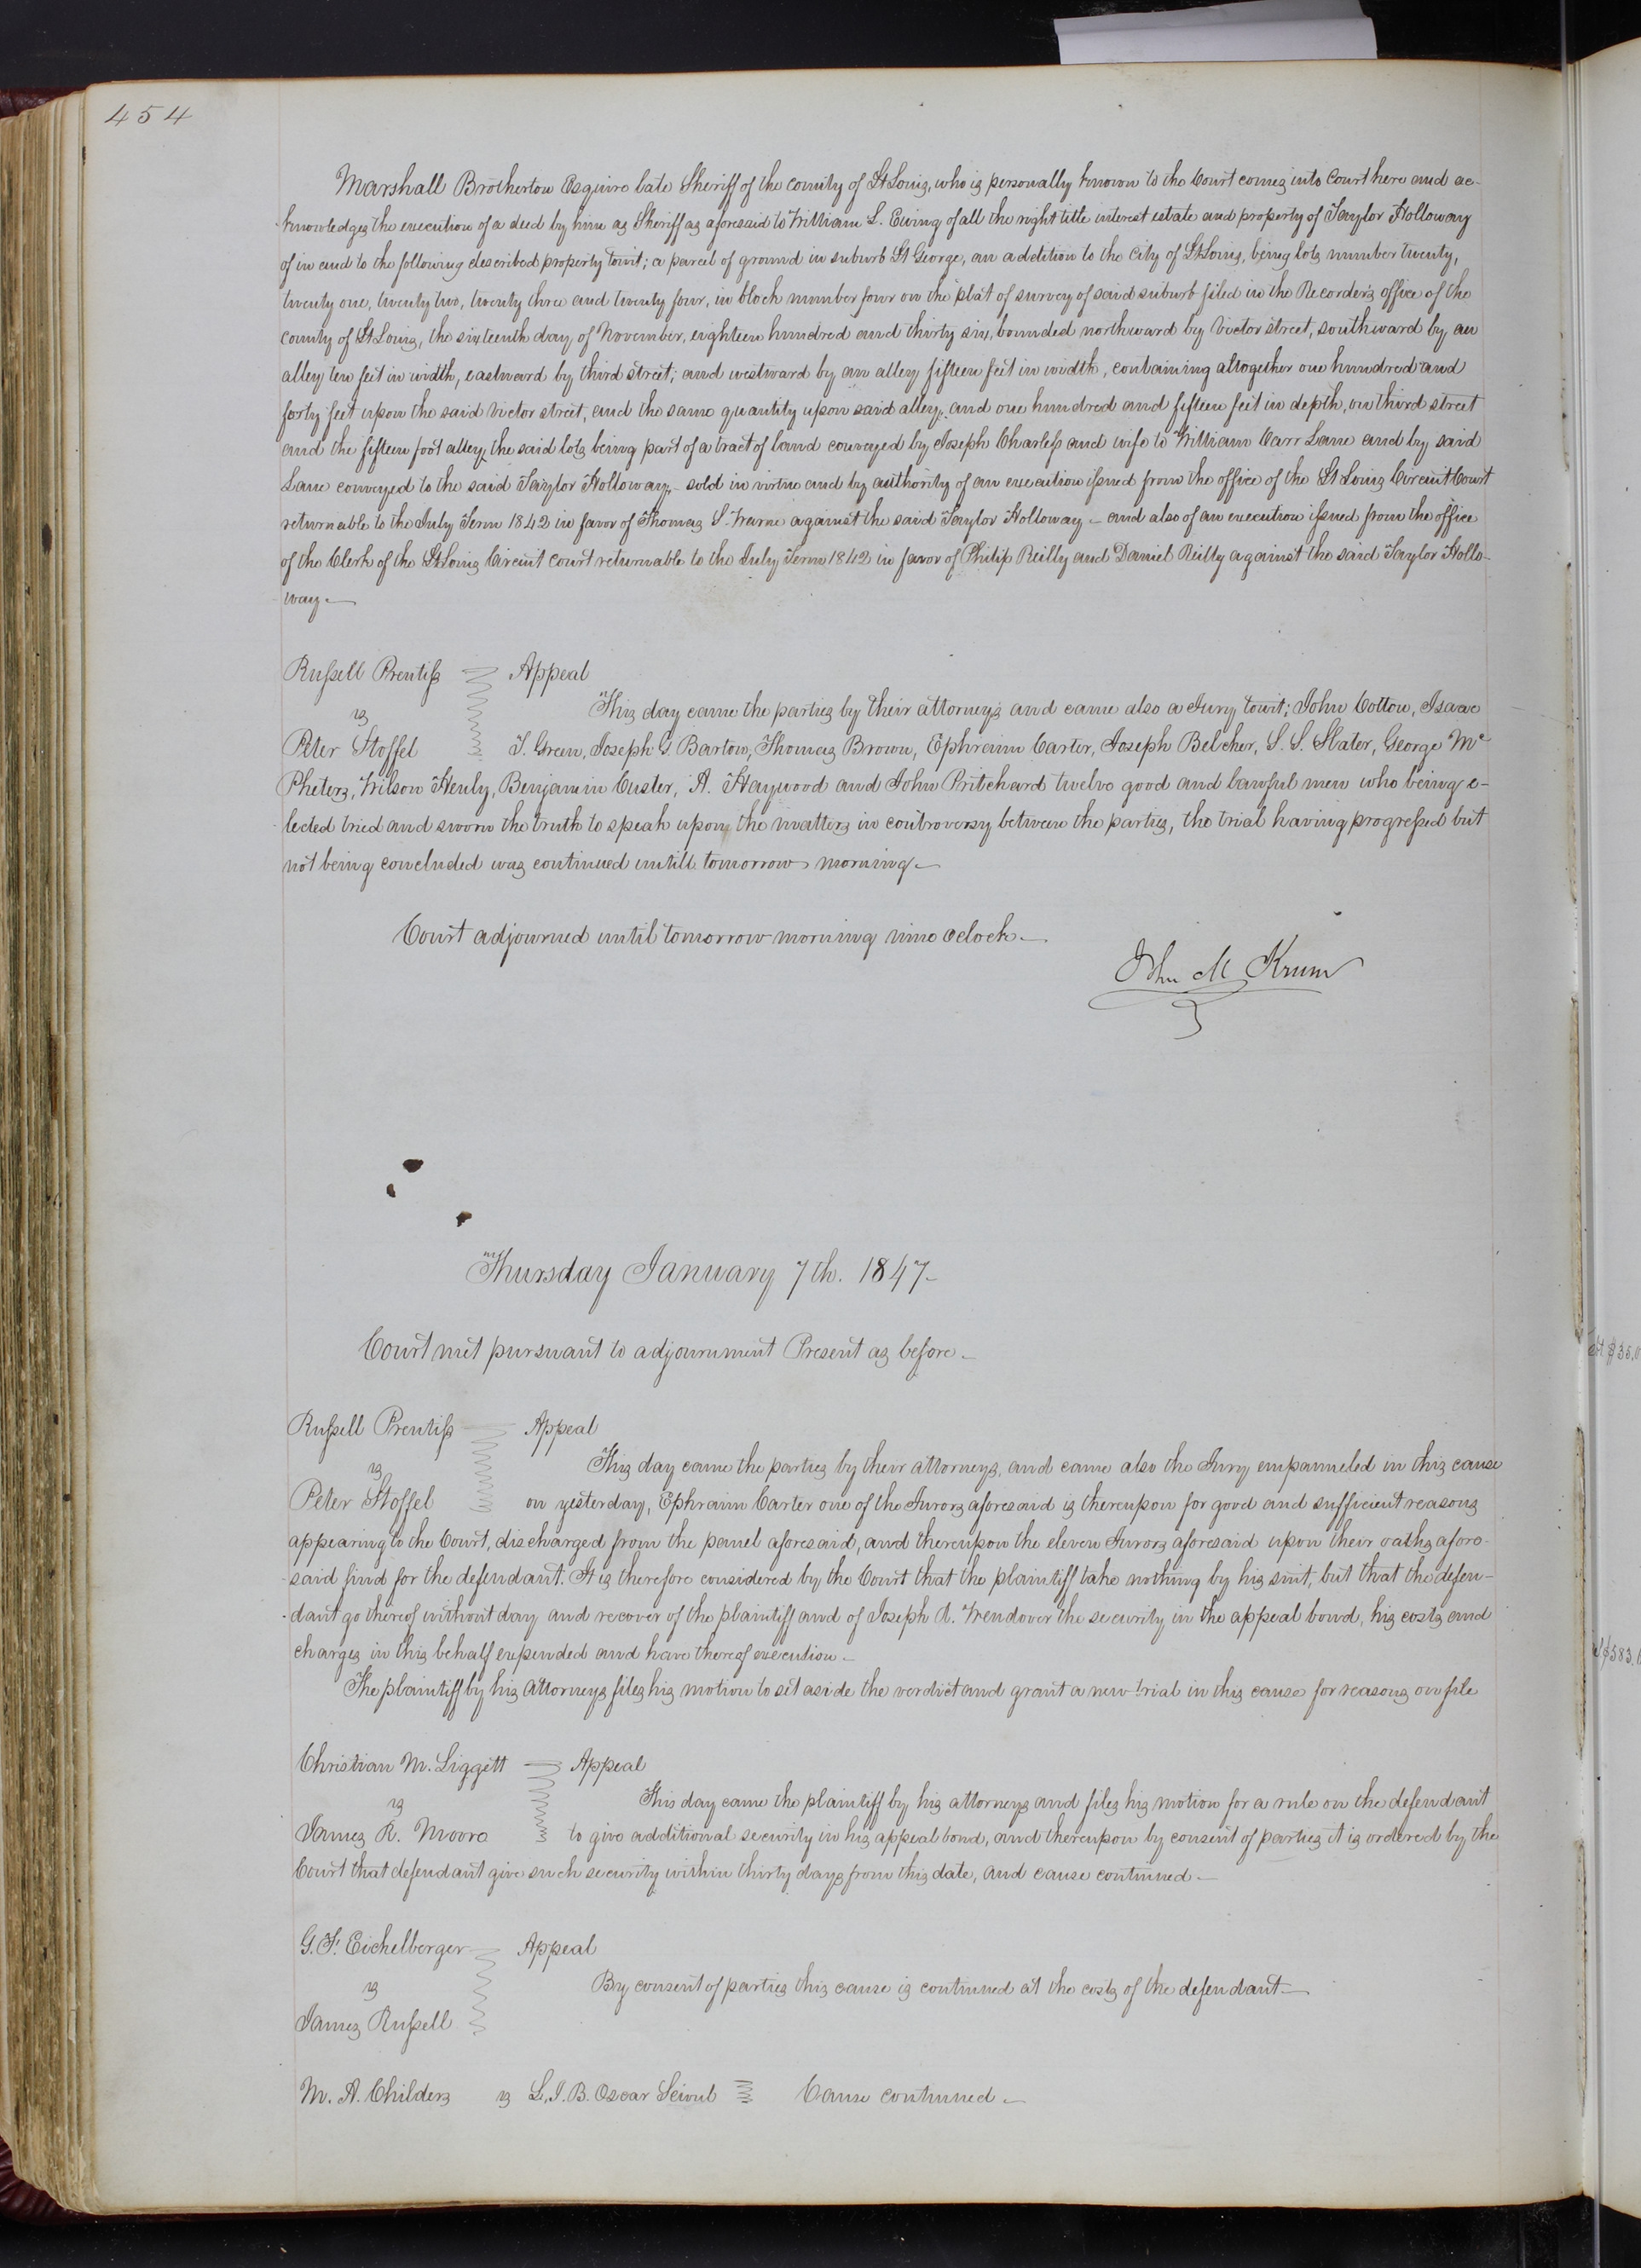 454
Marshall Brotherton Esquire late Sheriff of the county of St Louis, who is personally known to the Court comes into Court here and ac-
knowledges the execution of a deed by him as Sheriff as aforesaid to William L. Ewing of all the right title interest estate and property of Taylor Holloway
of in and to the following described property towit; a parcel of ground in suburb St George, an addetion to the City of St Louis, being lots number twenty,
twenty one, twenty two, twenty three and twenty four, in block number four on the plat of survey of said suburb filed in the Recorder's office of the
county of St Louis, the sixteenth day of November, eighteen hundred and thirty six, bounded northward by Victor street, southward by an
alley ten feet in width, eastward by third street; and westward by an alley fifteen feet in width, containing altogether one hundred and
forty feet upon the said Victor street, and the same quantity upon said alley, and one hundred and fifteen feet in depth, on third street
and the fifteen foot alley, the said lots being part of a tract of land conveyed by Joseph Charless and wife to William Carr Lane and by said
Lane conveyed to the said Taylor Holloway,- sold in virtue and by authority of an execution issued from the office of the St Louis Circuit Court
returnable to the July Term 1842 in favor of Thomas S. Warne against the said Taylor Holloway - and also of an execution issued from the office
of the Clerk of the St Louis Circuit Court returnable to the July Term 1842 in favor of Philip Reilly and Daniel Reilly against the said Taylor Hollo-
way.-
Russell Prentiss Appeal
vs This day came the parties by their attorneys and came also a Jury towit; John Cotton, Isaac
Peter Stoffel T. Green, Joseph G Barton, Thomas Brown, Ephraim Carter, Joseph Belcher, S. S. Slater, George Mc
Pheters, Wilson Henly, Benjamin Custer, A. Haywood and John Pritchard twelve good and lawful men who being e-
lected tried and sworn the truth to speak upon the matters in controversy between the parties, the trial having progressed but
not being concluded was continued untill tomorrow morning-
Court adjourned until tomorrow morning nine oclock.-
John M Krum
Thursday January 7th. 1847-
Court met pursuant to adjournment Present as before-
Russell Prentiss Appeal
vs This day came the parties by their attorneys, and came also the Jury empanneled in this cause
Peter Stoffel on yesterday, Ephraim Carter one of the Jurors aforesaid is thereupon for good and sufficient reasons
appearing to the Court, discharged from the panel aforesaid, and thereupon the eleven Jurors aforesaid upon their oaths afore-
said find for the defendant. It is therefore considered by the Court that the plaintiff take nothing by his suit, but that the defen-
dant go thereof without day and recover of the plaintiff and of Joseph A. Wendover the security in the appeal bond, his costs and
charges in this behalf expended and have thereof execution.-
The plaintiff by his attorneys files his motion to set aside the verdict and grant a new trial in this cause for reasons on file
Christian M. Liggett Appeal
vs This day came the plaintiff by his attorneys and files his motion for a rule on the defendant
James R. Moore to give additional security in his appeal bond, and thereupon by consent of parties it is ordered by the
Court that defendant give such security within thirty days from this date, and cause continued.-
G. F. Eichelberger Appeal
vs By consent of parties this cause is continued at the costs of the defendant.-
James Russell
M. A. Childers vs L, J. B. Oscar Cause continued.-